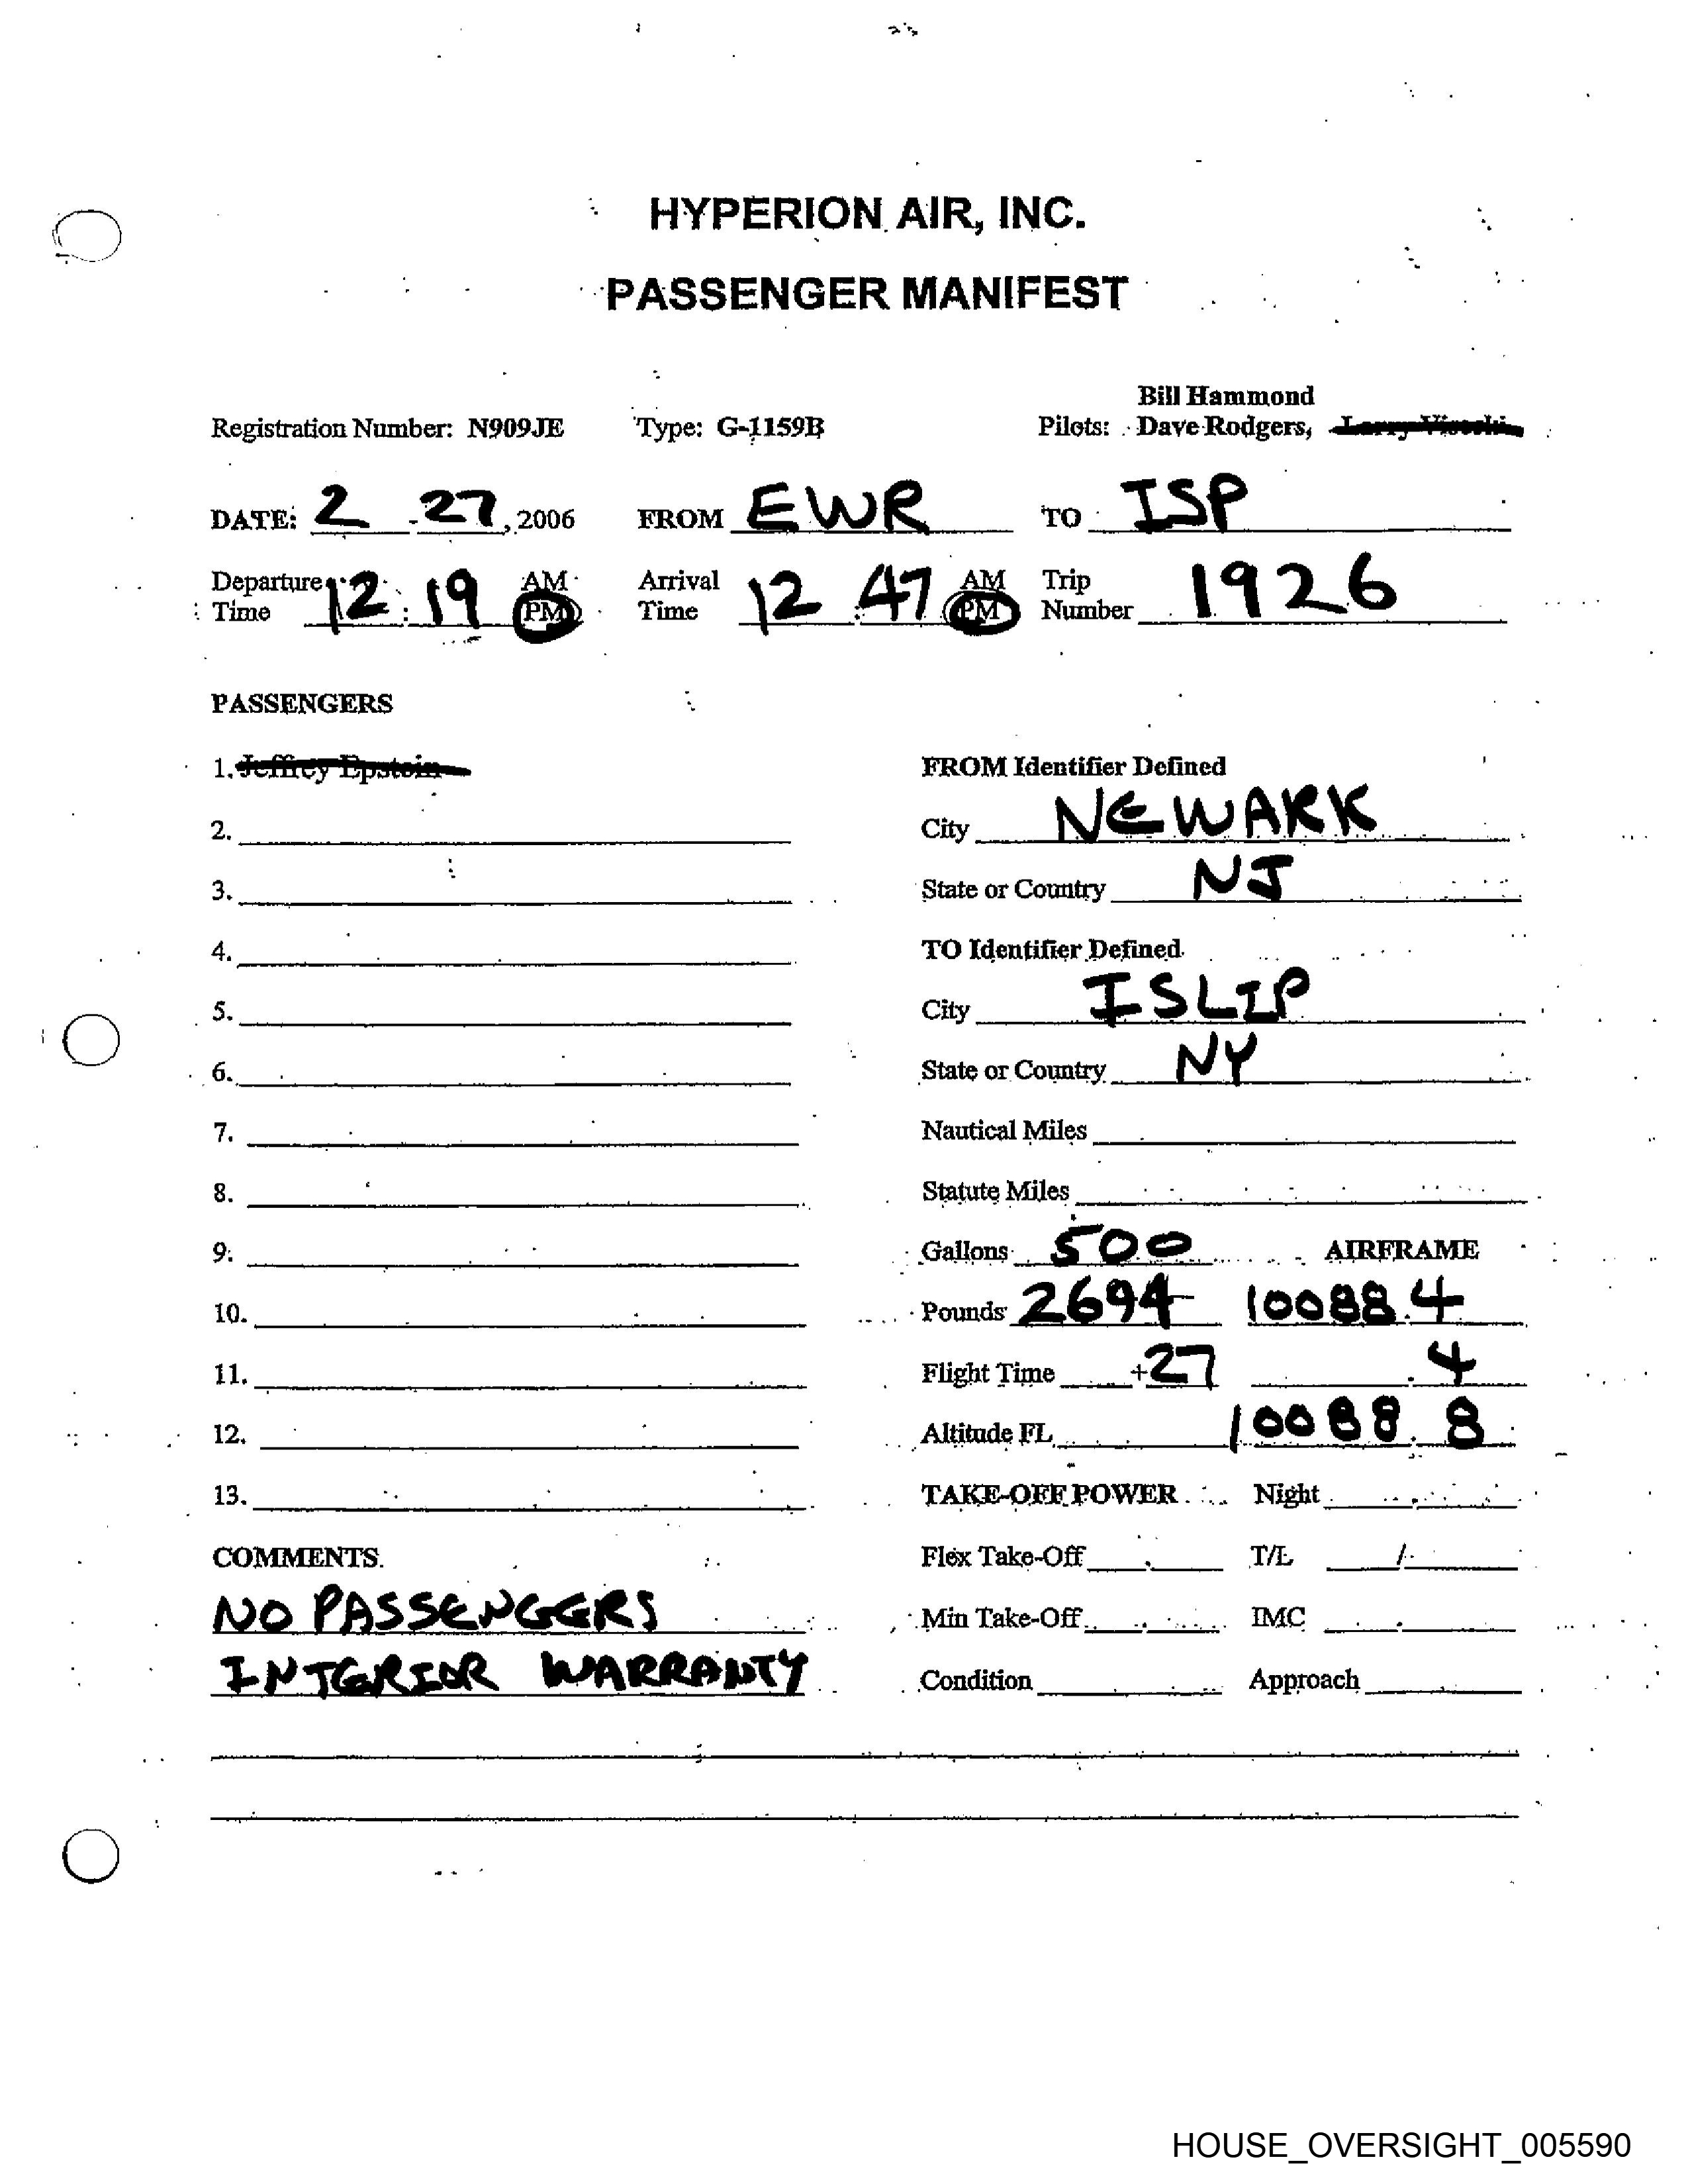 HYPERION AIR, INC.
PASSENGER MANIFEST
Bill Hammond
Registration Number: N909JE Type: G-1159B Pilots: Dave Rodgers, Larry Visoski
DATE: 2 - 27, 2006 FROM EWR TO ISP
Departure Time 12 : 19 AM PM Arrival Time 12 : 47 AM PM Trip Number 1926
PASSENGERS
1. Jeffrey Epstein
2.
3.
4.
5.
6.
7.
8.
9.
10.
11.
12.
13.
COMMENTS
NO PASSENGERS
INTERIOR WARRANTY
FROM Identifier Defined
City NEWARK
State or Country NJ
TO Identifier Defined
City ISLIP
State or Country NY
Nautical Miles
Statute Miles
Gallons 500 AIRFRAME
Pounds 2694 10088.4
Flight Time +27 .4
Altitude FL 10088.8
TAKE-OFF POWER Night
Flex Take-Off T/L /
Min Take-Off IMC
Condition Approach
HOUSE_OVERSIGHT_005590